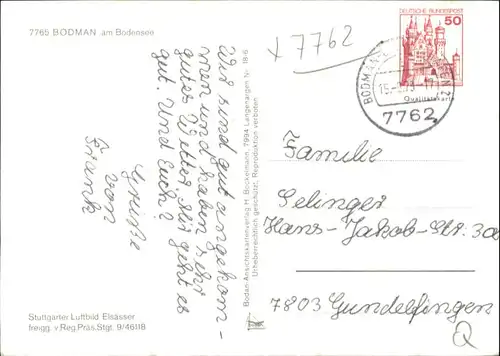 7765 BODMAN am Bodensee
x 7762
DEUTSCHE BUNDESPOST
50
BODMAN
15.
7762
Wir sind gut angekom-
men und haben sehr
gutes Wetter. Mir geht es
gut. Und Euch?
Grüße
von
Frank
Bodan-Ansichtskartenverlag H. Bockelmann, 7994 Langenargen Nr. 18-6
Urheberrechtlich geschützt, Reproduktion verboten
Familie
Selinger
Hans-Jakob-Str. 3a
7803 Gundelfingen
Stuttgarter Luftbild Elsässer
freigg. v. Reg. Präs. Stgt. 9/46118